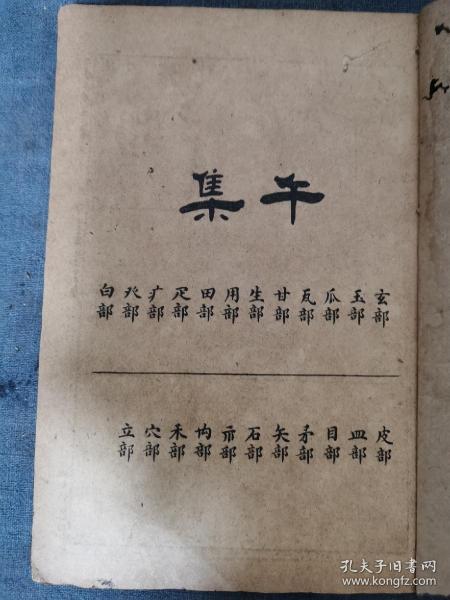 午集
玄部
玉部
瓜部
瓦部
甘部
生部
用部
田部
疋部
疒部
癶部
白部
皮部
皿部
目部
矛部
矢部
石部
示部
禸部
禾部
穴部
立部
孔夫子旧书网
www.kongfz.com